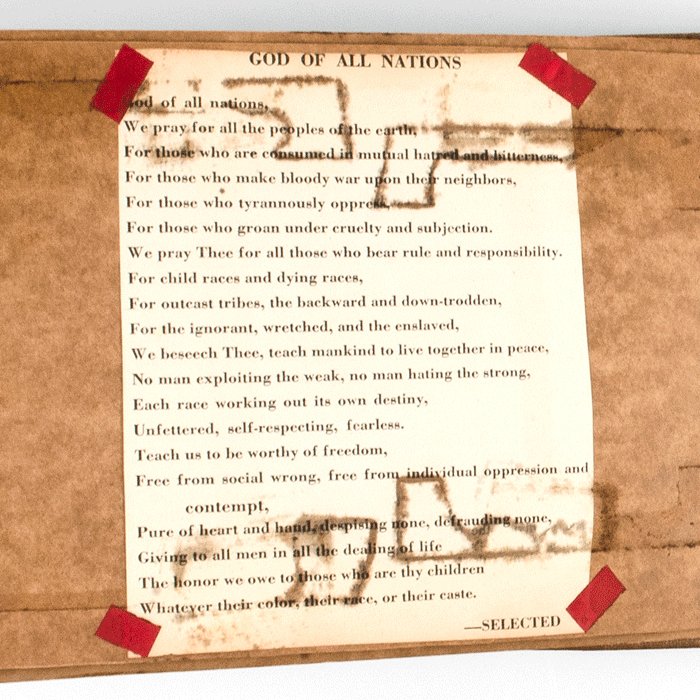 GOD OF ALL NATIONS
God of all nations,
We pray for all the peoples of the earth,
For those who are consumed in mutual hatred and bitterness,
For those who make bloody war upon their neighbors,
For those who tyrannously oppress,
For those who groan under cruelty and subjection.
We pray Thee for all those who bear rule and responsibility.
For child races and dying races,
For outcast tribes, the backward and down-trodden,
For the ignorant, wretched, and the enslaved,
We beseech Thee, teach mankind to live together in peace,
No man exploiting the weak, no man hating the strong,
Each race working out its own destiny,
Unfettered, self-respecting, fearless.
Teach us to be worthy of freedom,
Free from social wrong, free from individual oppression and
contempt,
Pure of heart and hand, despising none, defrauding none,
Giving to all men in all the dealing of life
The honor we owe to those who are thy children
Whatever their color, their race, or their caste.
—SELECTED